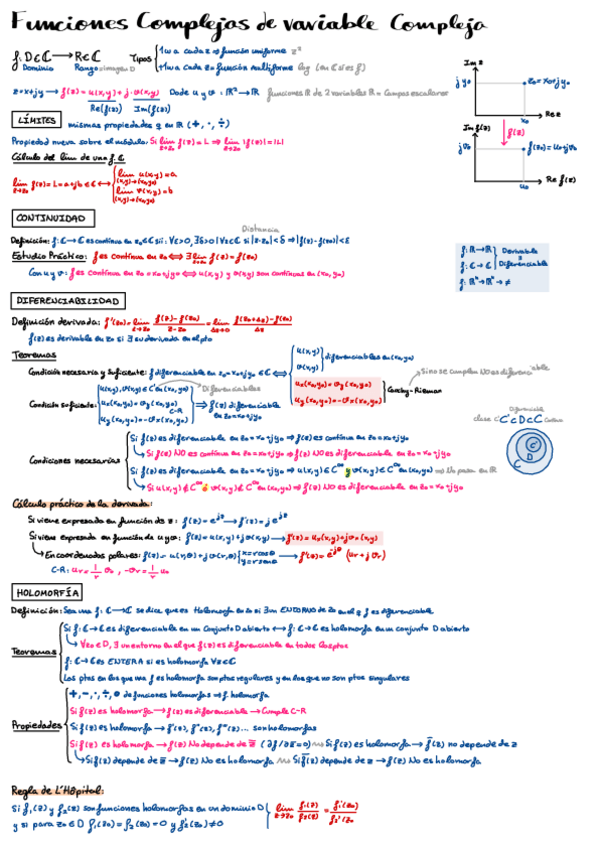 Funciones Complejas de variable Compleja
f: D∈ℂ → R∈ℂ
Dominio Rango=imagen D
Tipos
1 w a cada z ⇒ función uniforme z²
+1 w a cada z ⇒ función multiforme
z=x+jy → f(z)=u(x,y)+j·v(x,y)
Re(f(z)) Im(f(z))
Dode u y v: ℝ²→ℝ funciones ℝ de 2 variables ℝ = Campos escalares
Im z
j y₀
z₀=x₀+jy₀
x₀
Re z
f(z)
Im f(z)
j v₀
f(z₀)=u₀+jv₀
u₀
Re f(z)
LÍMITES
mismas propiedades q en ℝ (+, ·, ÷)
Propiedad nueva sobre el módulo: Si lim f(z)=L ⇒ lim |f(z)|=|L|
z→z₀ z→z₀
Cálculo del lim de una f. ℂ
lim f(z)=L=a+jb∈ℂ ⟷
z→z₀
lim u(x,y)=a
(x,y)→(x₀,y₀)
lim v(x,y)=b
(x,y)→(x₀,y₀)
CONTINUIDAD
Distancia
Definición: f: ℂ→ℂ es continua en z₀∈ℂ sii: ∀ε>0, ∃δ>0 | ∀z∈ℂ si |z-z₀|<δ ⇒ |f(z)-f(z₀)|<ε
Estudio Práctico: f es continua en z₀ ⟺ ∃ lim f(z)=f(z₀)
z→z₀
Con u y v: f es continua en z₀=x₀+jy₀ ⟺ u(x,y) y v(x,y) son continuas en (x₀,y₀)
f: ℝ→ℝ
f: ℂ→ℂ
Derivable
=
Diferenciable
f: ℝⁿ→ℝⁿ → ≠
DIFERENCIABILIDAD
Definición derivada: f'(z₀)=lim f(z)-f(z₀) / z-z₀ = lim f(z₀+Δz)-f(z₀) / Δz
z→z₀ Δz→0
f(z) es derivable en z₀ si ∃ su derivada en el pto
Teoremas
Condición necesaria y suficiente: f diferenciable en z₀=x₀+jy₀ ∈ℂ ⟺
u(x,y)
v(x,y)
diferenciables en (x₀,y₀)
uₓ(x₀,y₀)=v_y(x₀,y₀)
u_y(x₀,y₀)=-vₓ(x₀,y₀)
Cauchy-Rieman
Si no se cumplen NO es diferenciable
Condición suficiente:
u(x,y), v(x,y) ∈ C¹ en (x₀,y₀) → Diferenciables
uₓ(x₀,y₀)=v_y(x₀,y₀)
C-R
u_y(x₀,y₀)=-vₓ(x₀,y₀)
⇒ f(z) diferenciable
en z₀=x₀+jy₀
clase C'
C'⊂D⊂C
D
C
Condiciones necesarias
Si f(z) es diferenciable en z₀=x₀+jy₀ ⇒ f(z) es continua en z₀=x₀+jy₀
↳ Si f(z) NO es continua en z₀=x₀+jy₀ ⇒ f(z) NO es diferenciable en z₀=x₀+jy₀
Si f(z) es diferenciable en z₀=x₀+jy₀ ⇒ u(x,y)∈C^∞ y v(x,y)∈C^∞ en (x₀,y₀) ⇒ No pasa en ℝ
↳ Si u(x,y)∉C^∞ ó v(x,y)∉C^∞ en (x₀,y₀) ⇒ f(z) NO es diferenciable en z₀=x₀+jy₀
Cálculo práctico de la derivada:
Si viene expresada en función de z: f(z)=e^{jz} → f'(z)=j e^{jz}
Si viene expresada en función de u y v: f(z)=u(x,y)+jv(x,y) → f'(z)=uₓ(x,y)+jvₓ(x,y)
↳ En coordenadas polares: f(z)=u(r,θ)+jv(r,θ) x=rcosθ → f'(z)=e^{-jθ}(u_r+jv_r)
y=rsenθ
C-R: u_r=1/r v_θ , -v_r=1/r u_θ
HOLOMORFÍA
Definición: Sea una f: ℂ→ℂ se dice que es Holomorfa en z₀ si ∃ un ENTORNO de z₀ en el q f es diferenciable
Teoremas
Si f: ℂ→ℂ es diferenciable en un Conjunto D abierto ⟷ f: ℂ→ℂ es holomorfa en un conjunto D abierto
↳ ∀z₀∈D, ∃ un entorno en el que f(z) es diferenciable en todos los ptos
f: ℂ→ℂ es ENTERA si es holomorfa ∀z∈ℂ
Los ptos en los que una f es holomorfa son ptos regulares y en los que no son ptos singulares
Propiedades
+, -, ·, ÷, o de funciones holomorfas → f. holomorfa
Si f(z) es holomorfa → f(z) es diferenciable → Cumple C-R
Si f(z) es holomorfa → f'(z), f''(z), f'''(z)... son holomorfas
Si f(z) es holomorfa → f(z) No depende de z̄ (∂f/∂z̄=0) Si f(z) es holomorfa → f̄(z) no depende de z
↳ Si f(z) depende de z̄ → f(z) No es holomorfa Si f̄(z) depende de z → f(z) No es holomorfa
Regla de L'Hôpital:
Si f₁(z) y f₂(z) son funciones holomorfas en un dominio D
y si para z₀∈D f₁(z₀)=f₂(z₀)=0 y f₂'(z₀)≠0
lim f₁(z)/f₂(z) = f₁'(z₀)/f₂'(z₀)
z→z₀